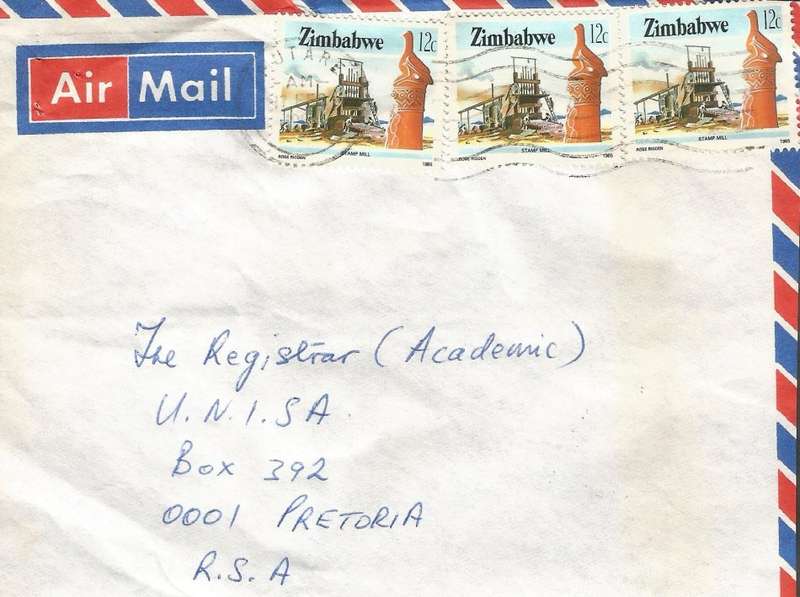 Air Mail
Zimbabwe 12c
STAMP MILL
ROSE RIGDEN 1985
Zimbabwe 12c
STAMP MILL
ROSE RIGDEN 1985
Zimbabwe 12c
STAMP MILL
ROSE RIGDEN
UTARE
AM
The Registrar (Academic)
U.N.I.S.A.
Box 392
0001 PRETORIA
R.S.A